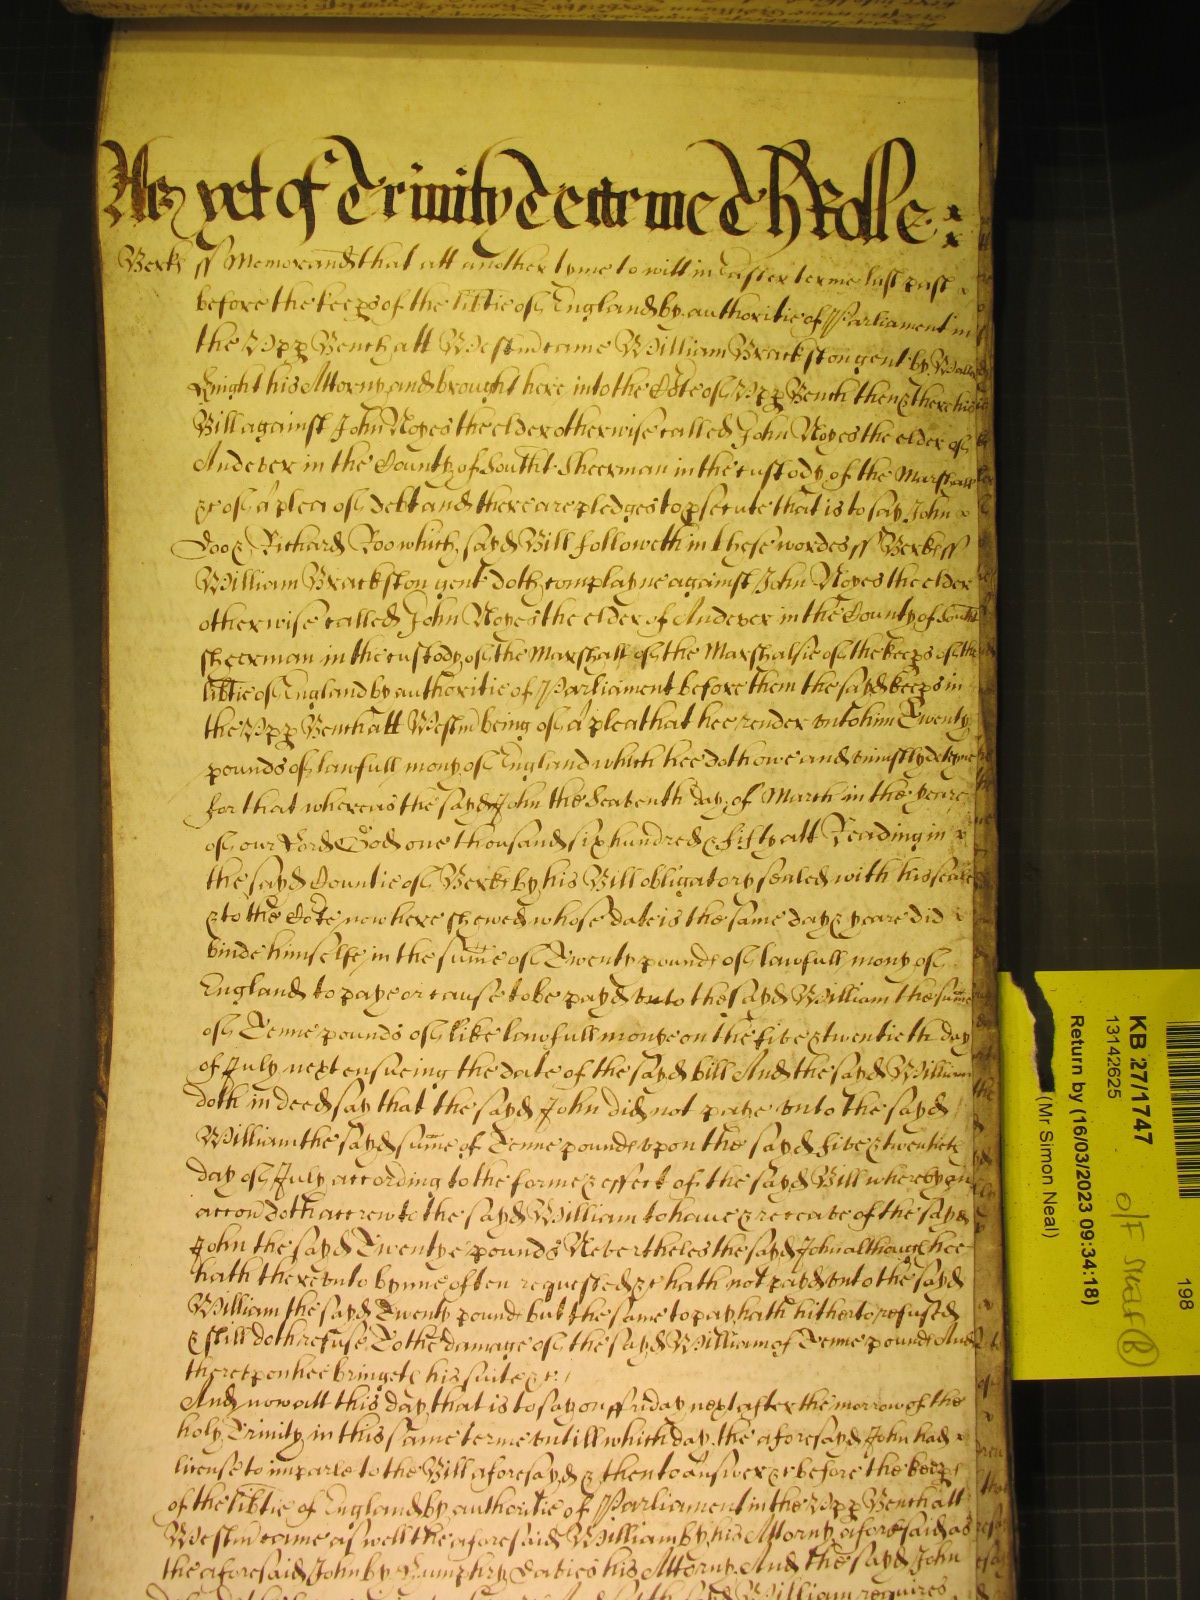 As yet of Trinity Terme The Rolle
Berks ss Memorand that att another tyme to witt in Easter terme last past
before the keeps of the libtie of England by authoritie of Parliament in
the Upp Bench att Westm came William Brackston gent by
Knight his Attorny and brought here into the Cote of Upp Bench then & there his
Bill against John Noyes the elder otherwise called John Noyes the elder of
Andever in the County of Southt Sheerman in the custody of the Marshall
&c of a plea of debt and there are pledges to psecute that is to say John
Doo & Richard Roo which sayd Bill followeth in these wordes ss Berks ss
William Brackston gent doth complayne against John Noyes the elder
otherwise called John Noyes the elder of Andever in the County of Southt
sheerman in the custody of the Marshall of the Marshalsie of the keeps of the
libtie of England by authoritie of Parliament before them the sayd keeps in
the Upp Bench att Westm being of a plea that hee render unto him Twenty
pounds of lawfull mony of England which hee doth owe and uniustly
for that whereas the sayd John the Seaventh day of March in the yeare
of our Lord God one thousand six hundred & fifty att Reading in
the sayd Countie of Berks by his Bill obligatory sealed with his seale
& to the Cote now here shewed whose date is the same day & yeare did
binde himselfe in the sume of Twenty pounds of lawfull mony of
England to paye or cause to be payd unto the sayd William the sume
of Tenne pounds of like lawfull monye on the five & twentieth day
of July next ensueing the date of the sayd bill And the sayd William
doth in deed say that the sayd John did not paye unto the sayd
William the sayd sume of Tenne pounds upon the sayd five & twentieth
day of July according to the forme & effect of the sayd Bill whereby an
accon doth accrew to the sayd William to have & receave of the sayd
John the sayd Twentye pounds Nevertheles the sayd John although hee
hath thereunto bynne often requested &c hath not payd unto the sayd
William the sayd Twenty pounds but the same to pay hath hitherto refused
& still doth refuse To the damage of the sayd William of Tenne pounds And
thereupon hee bringeth his suite &c
And now att this day that is to say on ffriday next after the morrow of the
holy Trinity in this same terme untill which day the aforesayd John had
license to imparle to the Bill aforesayd & then to answer &c before the keeps
of the libtie of England by authoritie of Parliament in the Upp Bench att
Westm came aswell the aforesaid William by his Attorny aforesaid as
the aforesaid John by Humphry Davies his Attorny And the sayd John
William requires
198
KB 27/1747
13142625
Return by (16/03/2023 09:34:18)
(Mr Simon Neal)
O/F